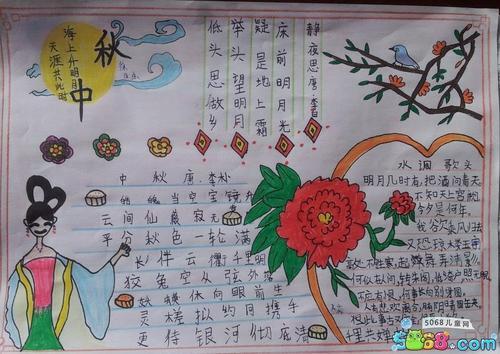 海上升明月
天涯共此时
秋中
静夜思 唐·李白
床前明月光
疑是地上霜
举头望明月
低头思做乡
中秋 唐·李朴
当空宝镜升
云间仙籁寂无
平分秋色一轮满
长伴云衢千里明
狡兔空从弦外落
休向眼前生
灵槎拟约同携手
更待银河彻底清
水调歌头
明月几时有,把酒问青天
不知天上宫阙
今夕是何年。
我欲乘风归去
又恐琼楼玉宇
高处不胜寒,起舞弄清影
何似在人间,转朱阁,低绮户照无眠
不应有恨,何事长向别时圆
5068儿童网
5068.com